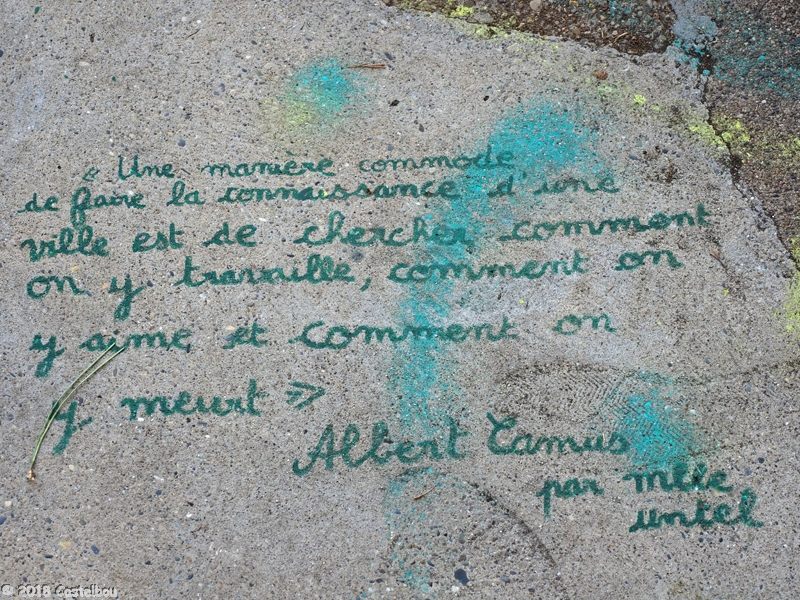 « Une manière commode
de faire la connaissance d'une
ville est de chercher comment
on y travaille, comment on
y aime et comment on
y meurt »
Albert Camus
par mlle
untel
© 2018 Castelbou